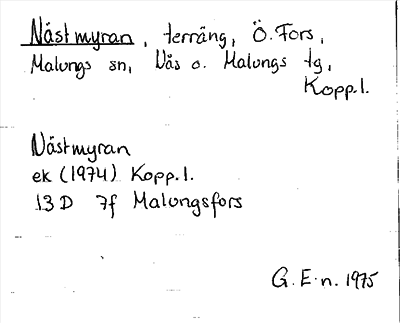 Nästmyran, terräng, Ö. Fors,
Malungs sn, Väs o. Malungs tg,
Kopp.l.
Nästmyran
ek (1974) Kopp.l.
13 D 7f Malungsfors
G. E-n. 1975